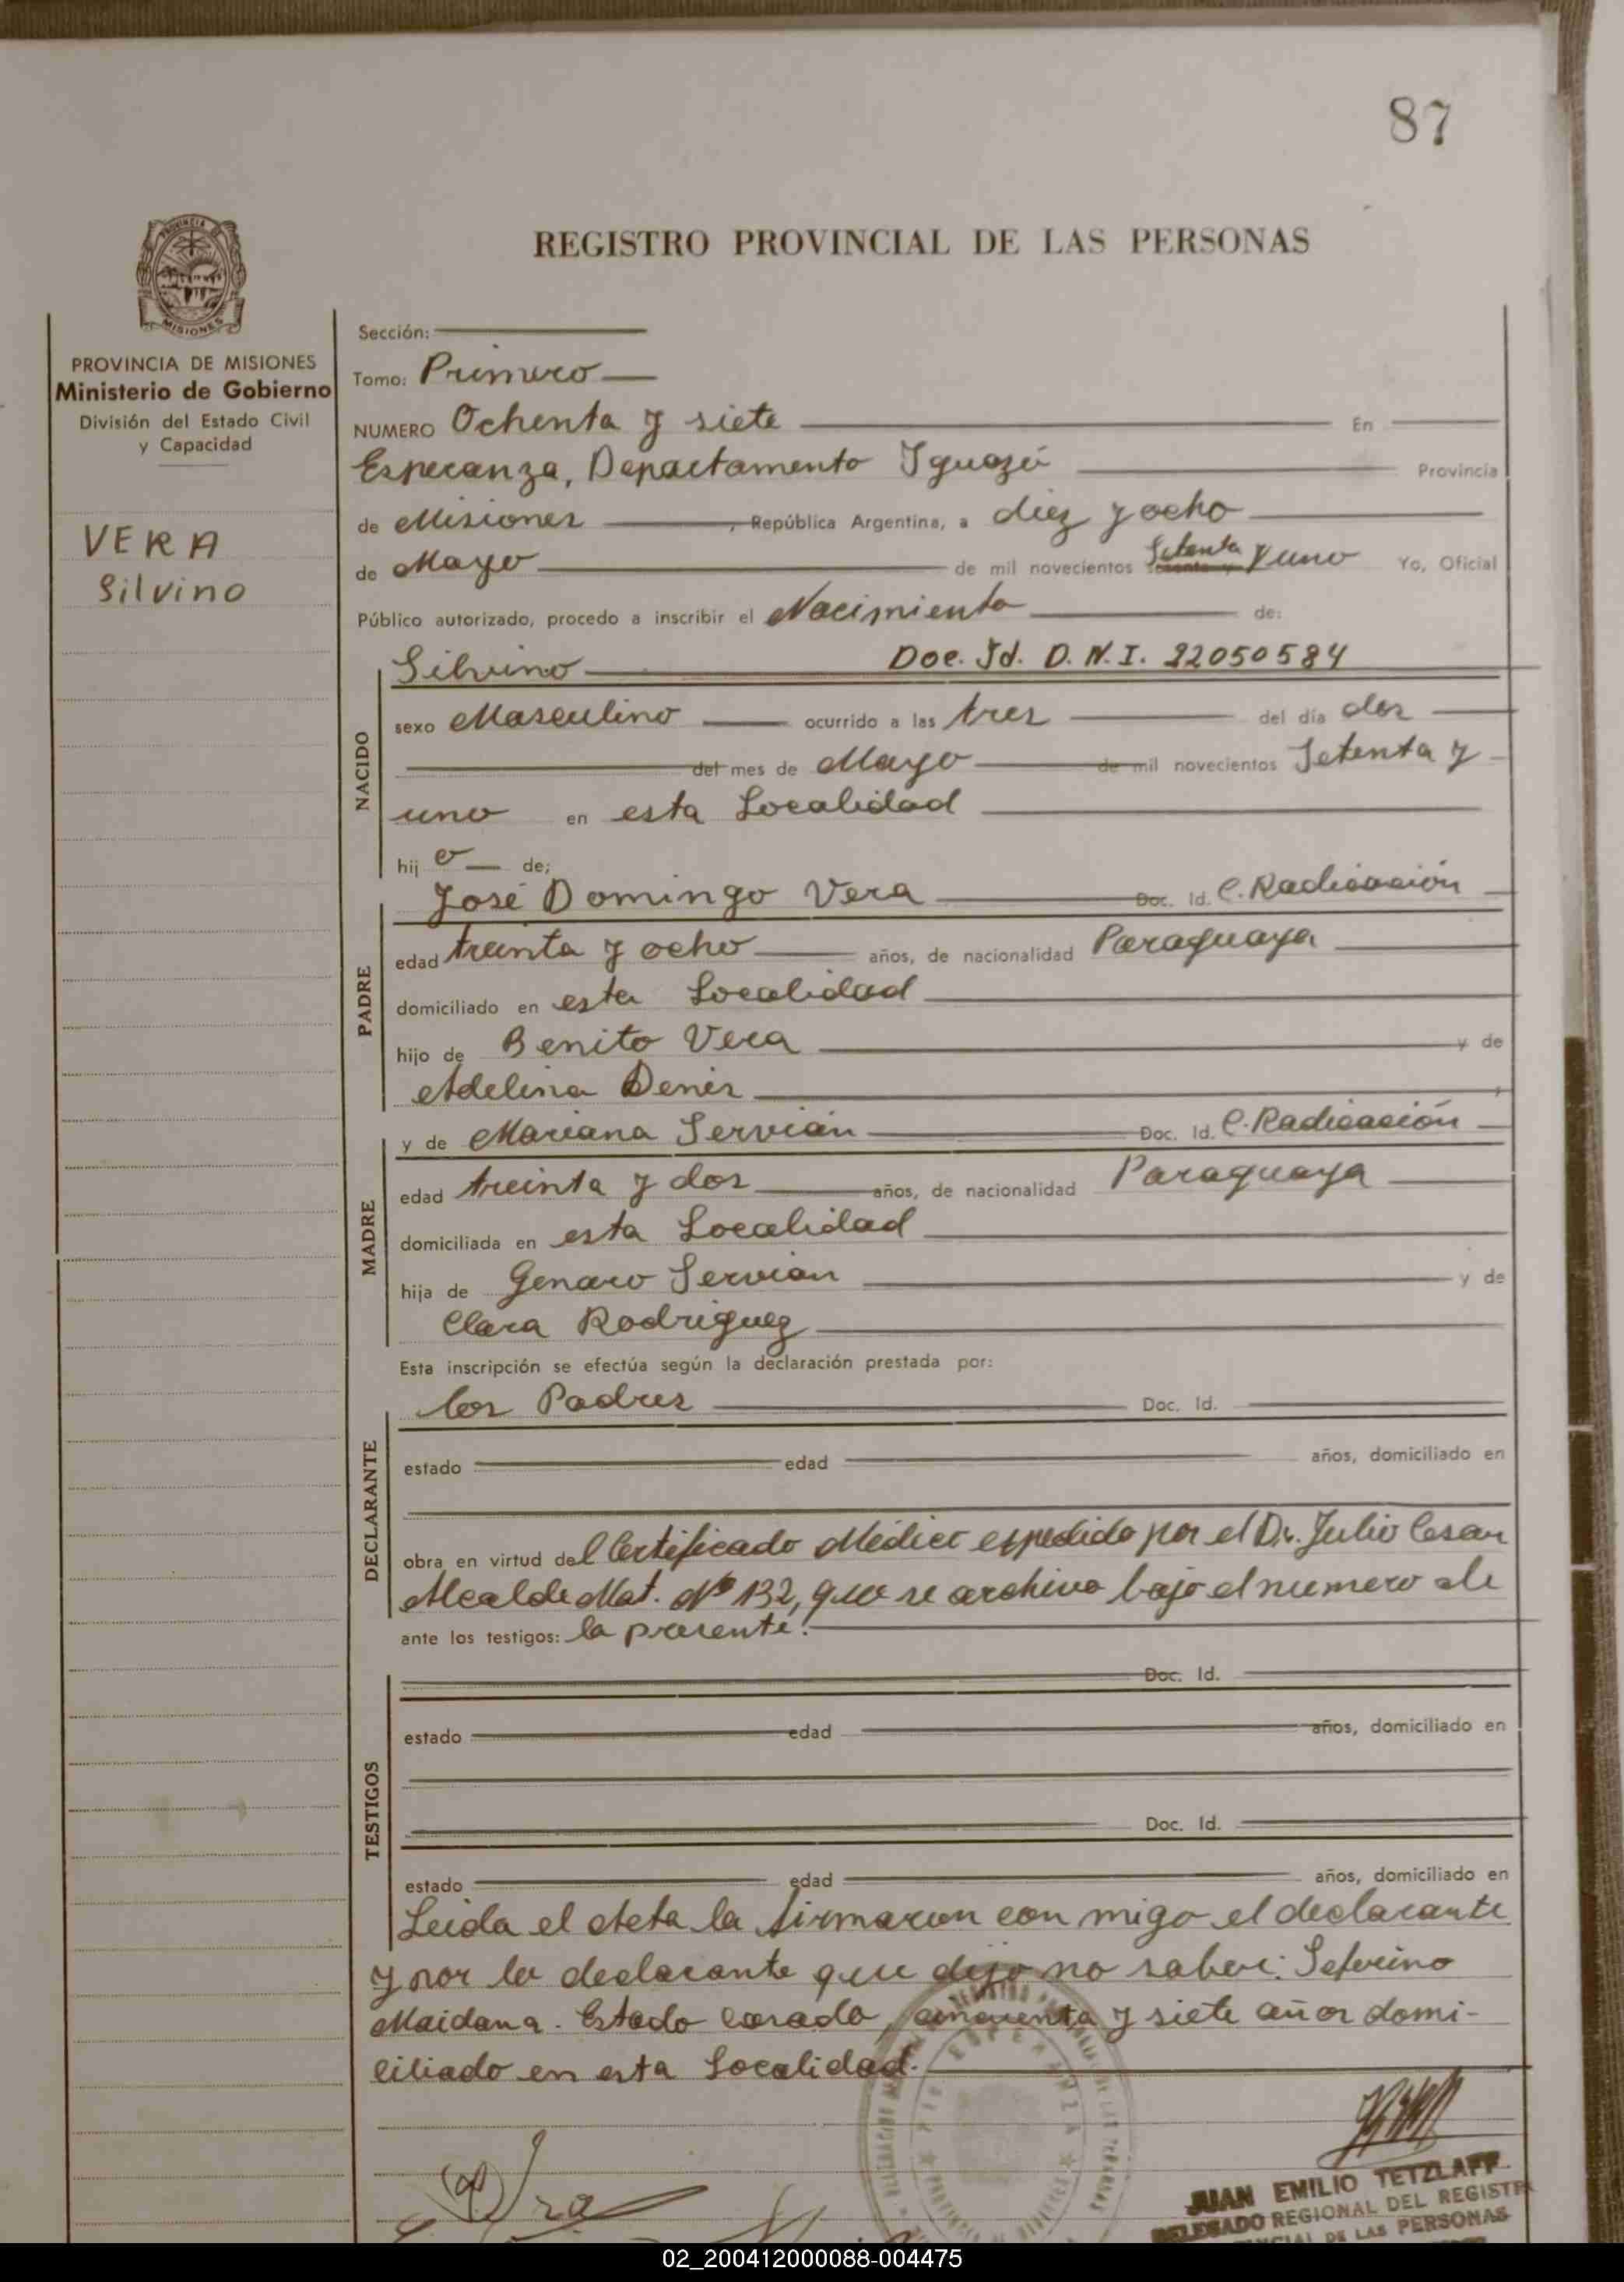 87
REGISTRO PROVINCIAL DE LAS PERSONAS
PROVINCIA DE MISIONES
Ministerio de Gobierno
División del Estado Civil
y Capacidad
VERA
Silvino
Sección:
Tomo: Primero
NUMERO Ochenta y siete En
Esperanza, Departamento Iguazú Provincia
de Misiones, República Argentina, a diez y ocho
de Mayo de mil novecientos Setenta y uno Yo, Oficial
Público autorizado, procedo a inscribir el Nacimiento de:
Silvino Doc. Id. D.N.I. 22050584
NACIDO
sexo Masculino ocurrido a las tres del día dos
del mes de Mayo de mil novecientos Setenta y
uno en esta Localidad
hijo de;
José Domingo Vera Doc. Id. C. Radicación
PADRE
edad treinta y ocho años, de nacionalidad Paraguaya
domiciliado en esta Localidad
hijo de Benito Vera y de
Adelina Denis
y de Mariana Servian Doc. Id. C. Radicación
MADRE
edad treinta y dos años, de nacionalidad Paraguaya
domiciliada en esta Localidad
hija de Genaro Servian y de
Clara Rodriguez
Esta inscripción se efectúa según la declaración prestada por:
los Padres Doc. Id.
DECLARANTE
estado edad años, domiciliado en
obra en virtud del Certificado Médico expedido por el Dr. Julio Cesar
Alcalde Mat. Nº 132, que se archiva bajo el numero de
ante los testigos: la presente.
Doc. Id.
TESTIGOS
estado edad años, domiciliado en
Doc. Id.
estado edad años, domiciliado en
Leida el Acta la firmaron con migo el declarante
y por la declarante que dijo no saber: Seferino
Maidana. Estado Casado, cincuenta y siete años domi-
ciliado en esta Localidad.
JUAN EMILIO TETZLAFF
DELEGADO REGIONAL DEL REGISTR
DE LAS PERSONAS
02_200412000088-004475